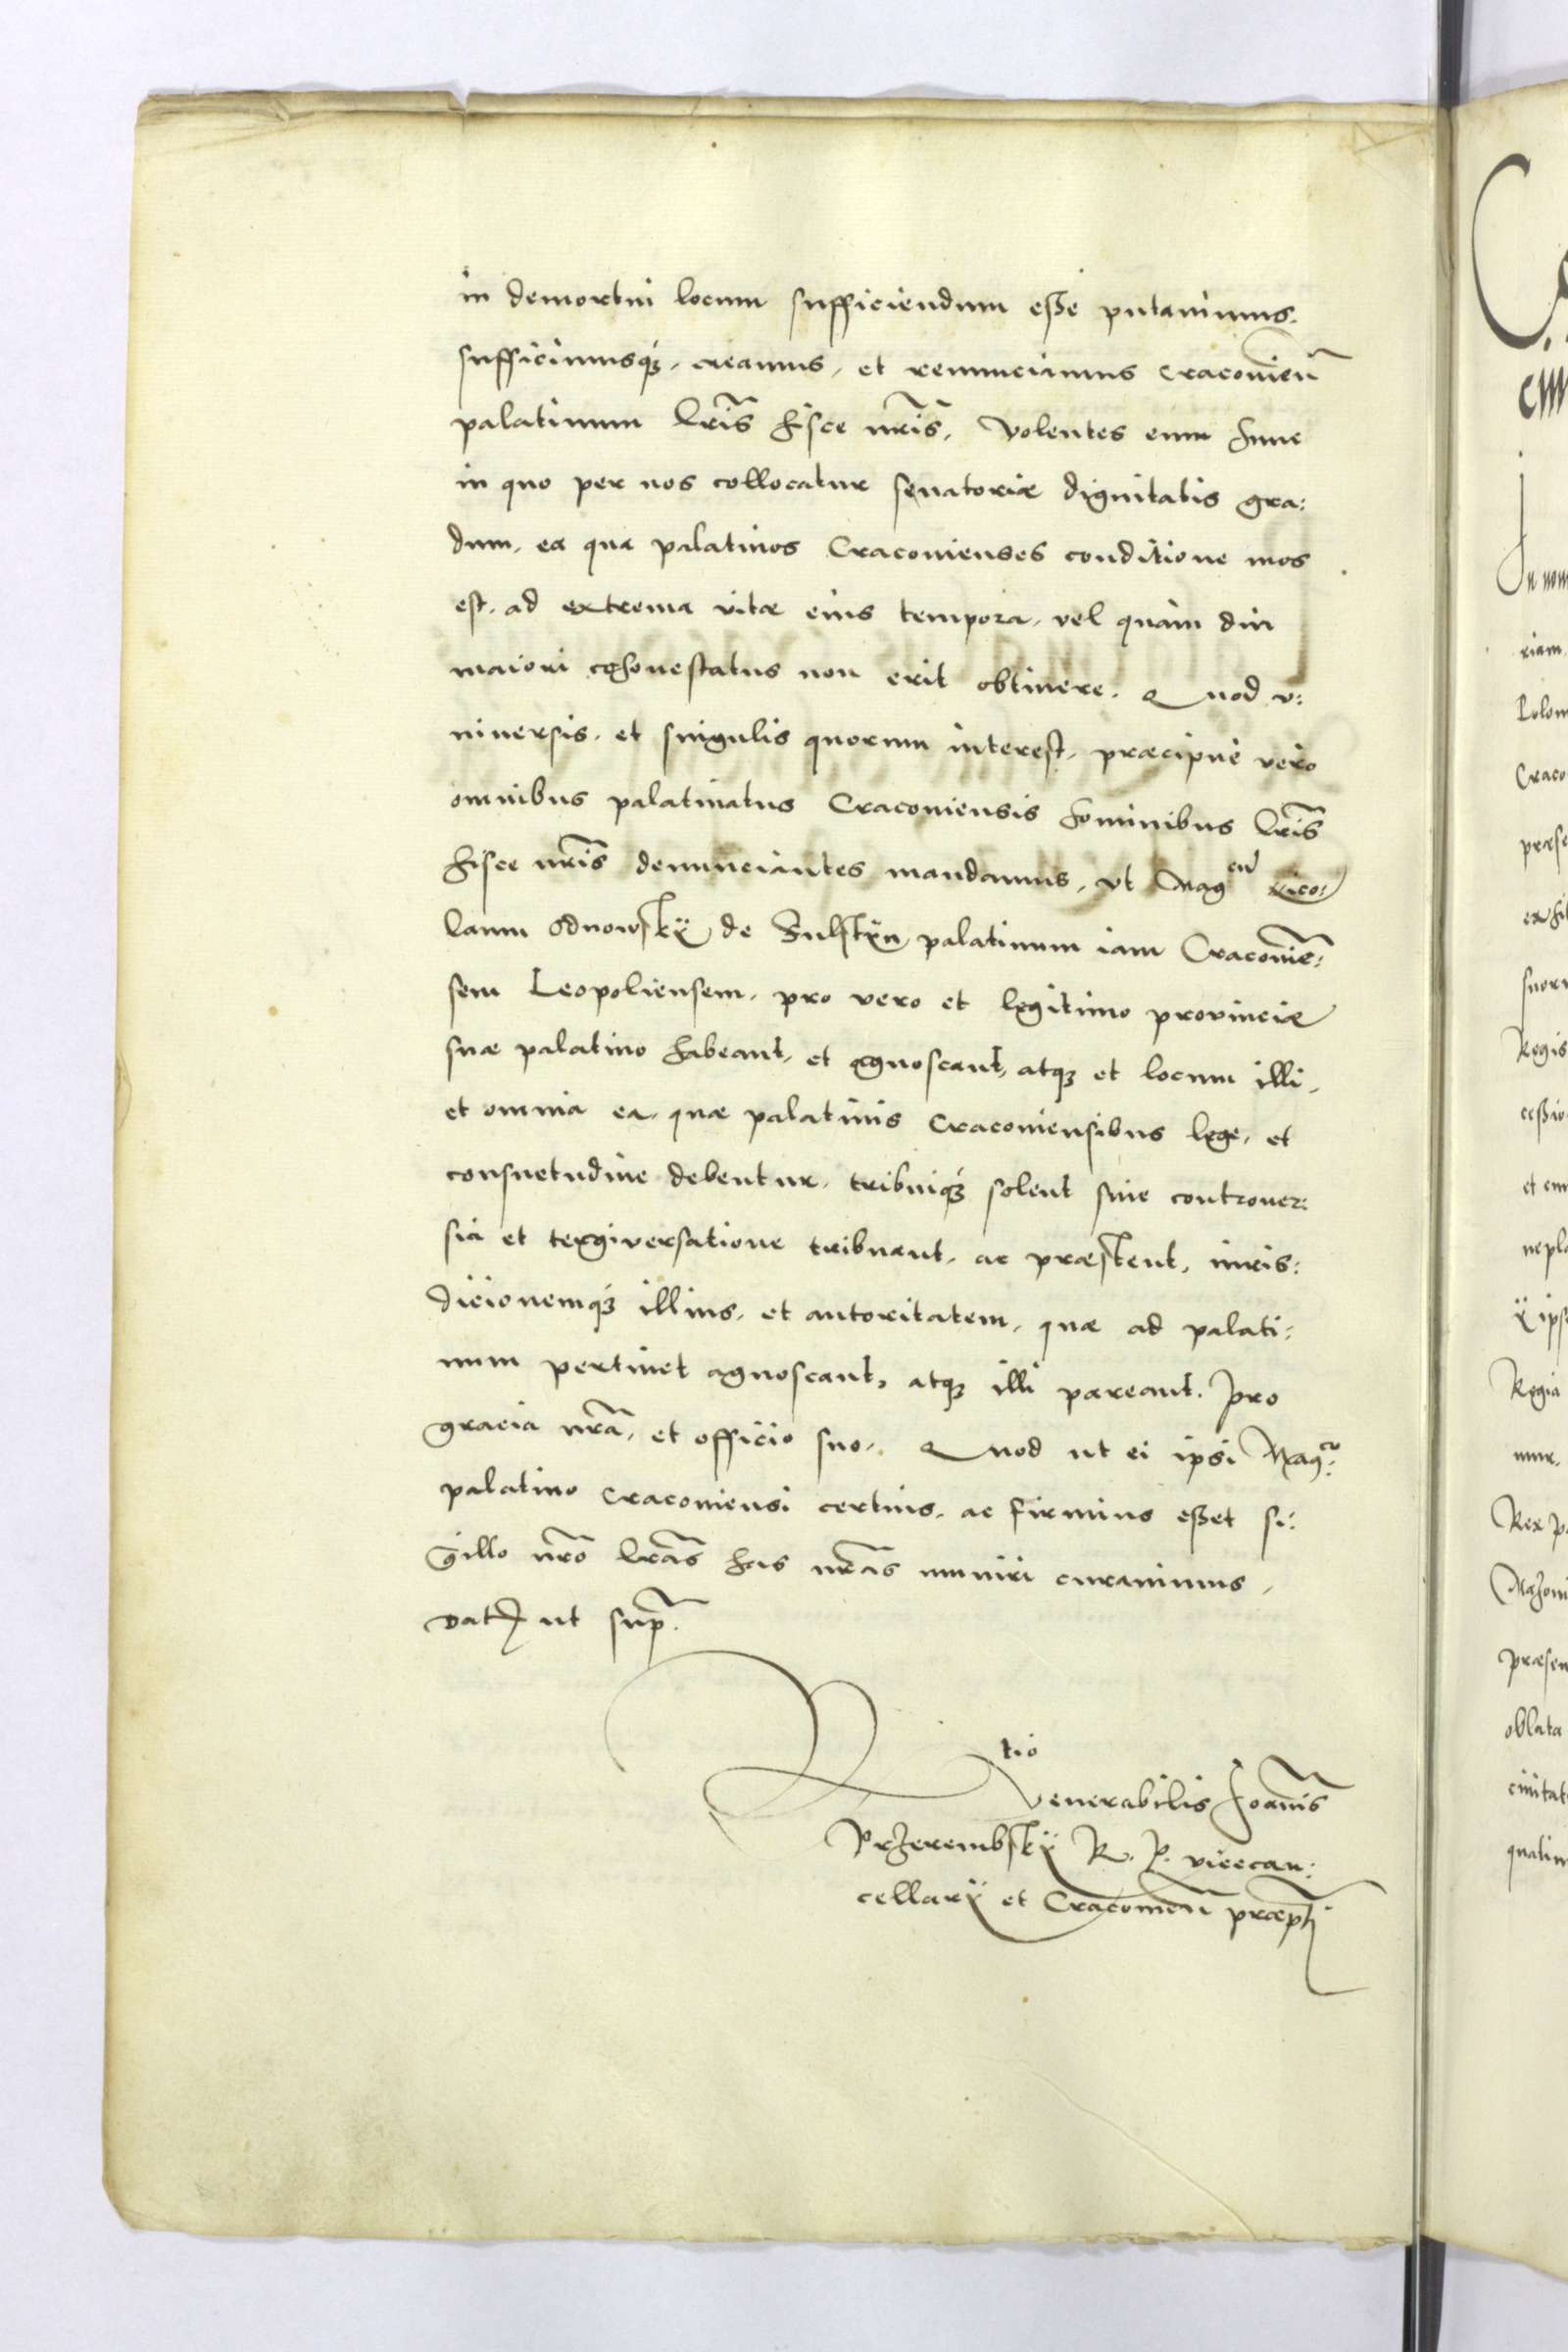 in demortui locum sufficiendum esse putauimus.
sufficimusq́ꝫ, creamus, et renunciamus Cracouień
palatinum lr̃is hisce nr̃is, Volentes eum hunc
in quo per nos collocatur senatoriæ dignitatis gra:
dum, ea qua palatinos Cracouienses conditione mos
est, ad extrema vitæ eius tempora, vel quàm diu
maiori cohonestatus non erit obtinere. Quod v:
niuersis, et singulis quorum interest, præcipuè verò
omnibus palatinatus Cracouiensis hominibus lr̃is
hisce nr̃is denunciantes mandamus, vt Magcũ Nico:
laum Odnowskÿ de Fulstÿn palatinum iam Cracouień:
sem Leopoliensem, pro vero et legitimo prouinciæ
suæ palatino habeant, et agnoscant, atqꝫ et locum illi,
et omnia ea, quæ palatinis Cracouiensibus lege, et
consuetudine debentur, tribuiq́ꝫ solent sine controuer:
sia et tergiuersatione tribuant, ac præstent, iuris:
dicionemq́ꝫ illius, et autoritatem, quæ ad palati:
num pertinet agnoscant, atqꝫ illi pareant. Pro
gracia nr̃a, et officio suo. Quod ut ei ipsi Magco:
palatino Cracouiensi certius, ac firmius esset si:
gillo nr̃o lr̃as has nr̃as muniri curauimus,
Datꝭ ut supr̃.
Rtio
Venerabilis Joañis
Przerembskÿ R. P. vicecan:
cellarÿ et Cracouień præpti